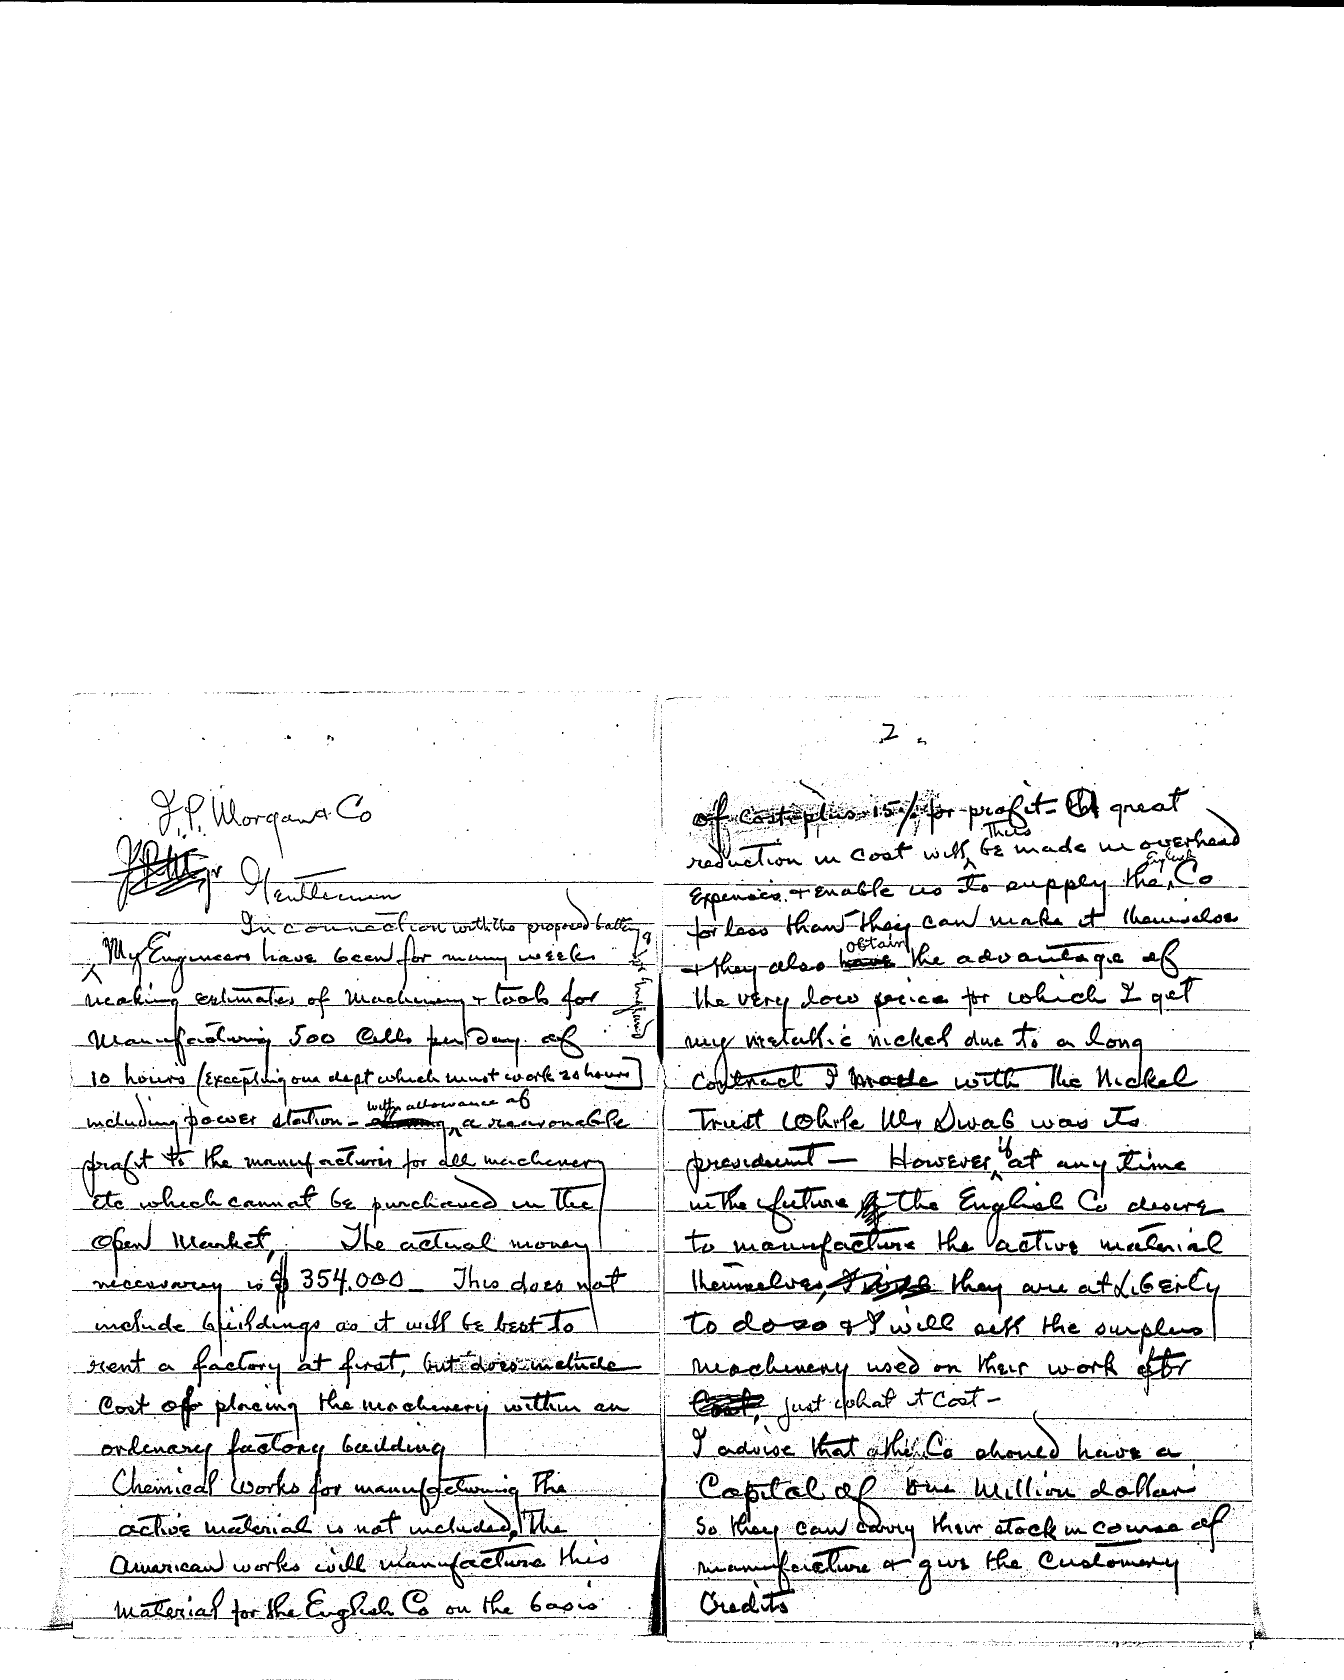 J.P. Morgan & Co
Gentlemen
In connection with the proposed battery
My Engineers have been for many weeks
making estimates of Machinery & tools for
Manufacturing 500 Cells per day of
10 hours (Excepting one dept which must work 20 hours)
including power station - with allowance of a reasonable
profit to the manufacturer for all machinery
etc which cannot be purchased in the
Open Market, The actual money
necessary is $354.000 - This does not
include buildings as it will be best to
rent a factory at first, but does include
Cost of placing the machinery within an
ordenary factory building
Chemical Works for manufacturing the
active material is not included, The
American works will manufacture this
Material for the English Co on the basis
2
of cost plus 15% for profit - great
reduction in cost will thus be made in overhead
Expenses. & enable us to supply the English Co
for less than they can make it themselves
& they also obtain the advantage of
the very low price for which I get
my metallic nickel due to a long
contract I made with the Nickel
Trust while Mr Swab was its
president — However, if at any time
in the future the English Co desire
to manufacture the active material
themselves, they are at Liberty
to do so & I will sell the surplus
machinery used on their work for
just what it cost -
I advise that the Co should have a
Capital of One Million dollars
So they can carry their stock in course of
manufacture & give the Customery
Credits